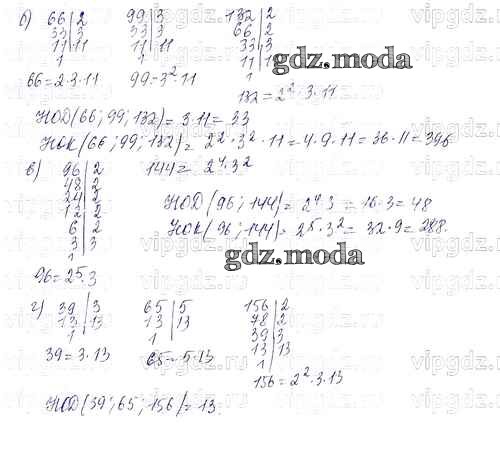 б) 66|2 99|3 132|2
33|3 33|3 66|2
11|11 11|11 33|3
1 1 11|11
1
66=2·3·11 99=3²·11 132=2²·3·11
gdz.moda
НОД(66; 99; 132)=3·11=33
НОК(66; 99; 132)=2²·3²·11=4·9·11=36·11=396
в) 96|2 144=2⁴·3²
48|2
24|2
12|2
6|2
3|3
1
НОД(96; 144)=2⁴·3=16·3=48
НОК(96; 144)=2⁵·3²=32·9=288.
gdz.moda
96=2⁵·3
г) 39|3 65|5 156|2
13|13 13|13 78|2
1 1 39|3
13|13
1
39=3·13 65=5·13 156=2²·3·13
НОД(39; 65; 156)=13.
vipgdz.ru